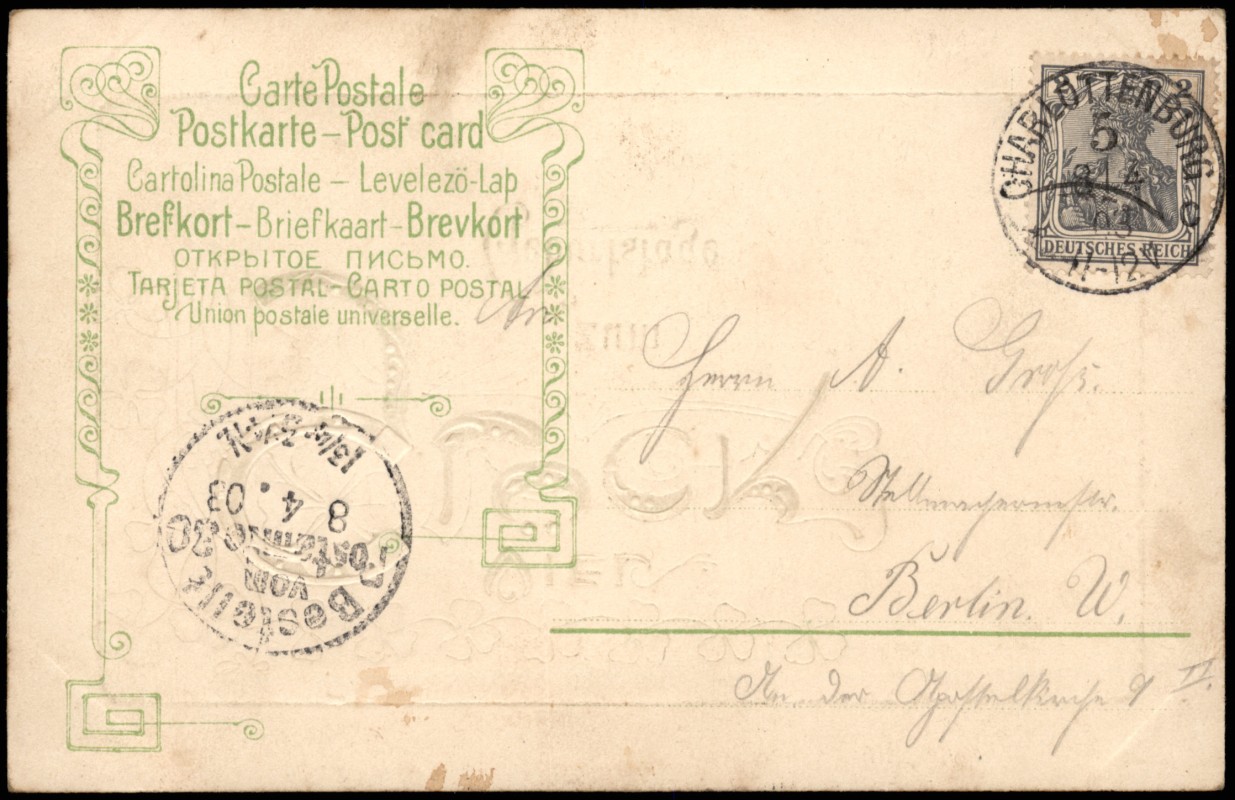 Carte Postale
Postkarte – Post card
Cartolina Postale – Levelező-Lap
Brefkort – Briefkaart – Brevkort
ОТКРЫТОЕ ПИСЬМО.
TARJETA POSTAL – CARTO POSTAL
Union postale universelle.
CHARLOTTENBURG
5
8 4
03
11-12V
c
2
DEUTSCHES REICH
An
Herrn A. Groß.
Stellmachermstr.
Berlin. W.
An der Apostelkirche 9 II.
Bestellt
vom
Postamte 30
8. 4. 03